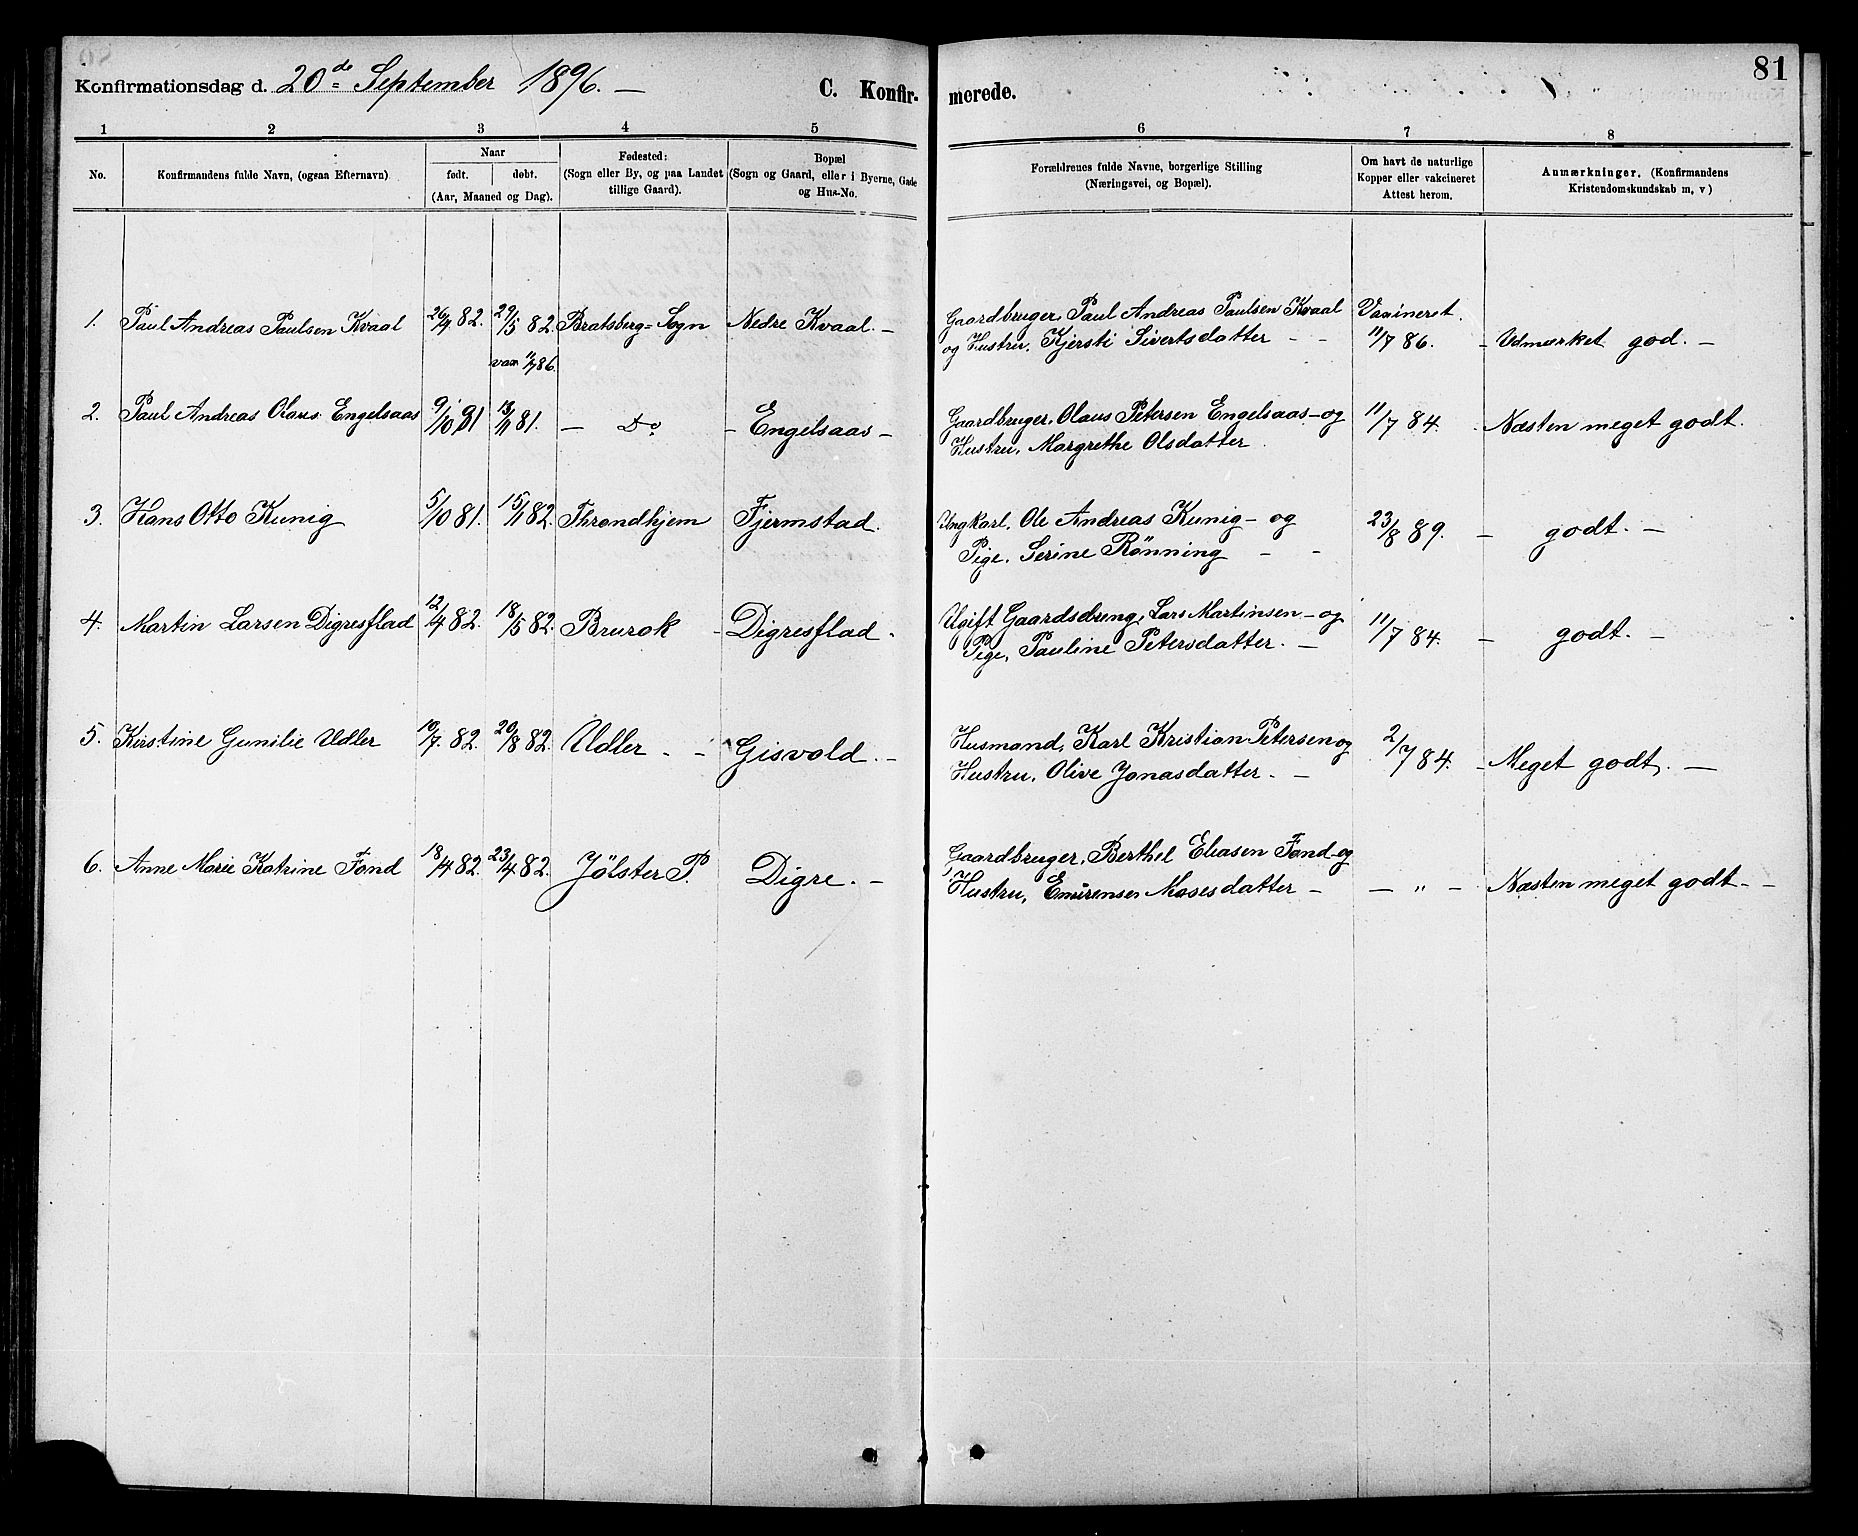 Konfirmationsdag d. 20de September 1896. —
C. Konfir-
merede.
81
1 2 3 4 5 6 7 8
No.
Konfirmandens fulde Navn, (ogsaa Efternavn)
Naar
født. døbt.
(Aar, Maaned og Dag).
Fødested:
(Sogn eller By, og paa Landet
tillige Gaard).
Bopæl
(Sogn og Gaard, eller i Byerne, Gade
og Hus-No.
Forældrenes fulde Navne, borgerlige Stilling
(Næringsvei, og Bopæl).
Om havt de naturlige
Kopper eller vakcineret
Attest herom.
Anmærkninger. (Konfirmandens
Kristendomskundskab m, v)
1. Paul Andreas Paulsen Kvaal 26/4 82. 29/5 82. Bratsberg= Sogn Nedre Kvaal. — Gaardbruger, Paul Andreas Paulsen Kvaal Vaxineret.
vax 11/7 86. og Hustru, Kjersti Sivertsdatter - - 11/7 86. - Udmærket god. —
2. Paul Andreas Olaus Engelsaas 9/10 81 13/11 81. — Do - Engelsaas — Gaardbruger, Olaus Petersen Engelsaas — og 11/7 84. - Næsten meget godt.
Hustru, Margrethe Olsdatter.
3. Hans Otto Kunig 5/10 81. 15/1 82. Throndhjem Fjermstad. Ungkarl, Ole Andreas Kunig — og 23/8 89. — godt. —
Pige. Serine Rønning - -
4. Martin Larsen Digresflad 12/4 82. 18/5 82. Brurok - Digresflad. Ugift Gaardsdreng, Lars Martinsen — og 11/7 84. — godt. —
Pige, Pauline Petersdatter. —
5. Kirstine Gunilie Udler 10/7. 82. 20/8 82. Udler - - Gisvold. — Husmand, Karl Kristian Petersen og 2/7 84. - Meget godt. —
Hustru, Olive Jonasdatter. —
6. Anne Marie Katrine Fond 18/4 82. 23/4 82. Jølster P. Digre. — Gaardbruger, Berthel Eliasen Fond - og
Hustru, Mosesdatter — — " — Næsten meget godt - -